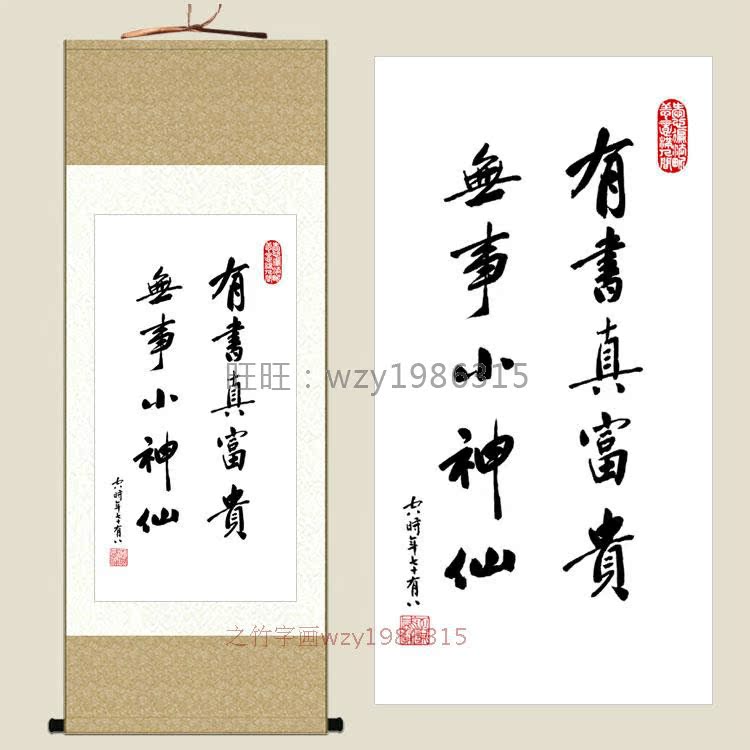 有書真富貴
無事小神仙
時年七十有八
有書真富貴
無事小神仙
時年七十有八
旺旺：wzy1986315
之竹字画wzy1986315